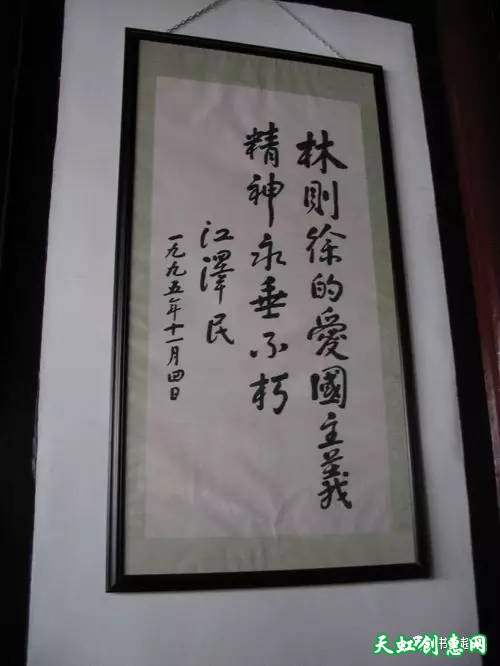 林則徐的愛國主義
精神永垂不朽
江澤民
一九九五年十一月四日
天虹创意网